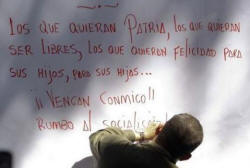 LOS QUE QUIERAN PATRIA, LOS QUE QUIERAN
SER LIBRES, LOS QUE QUIERAN FELICIDAD PARA
SUS HIJOS, PARA SUS HIJAS...
¡¡VENGAN CONMIGO!!
RUMBO AL SOCIALISMO